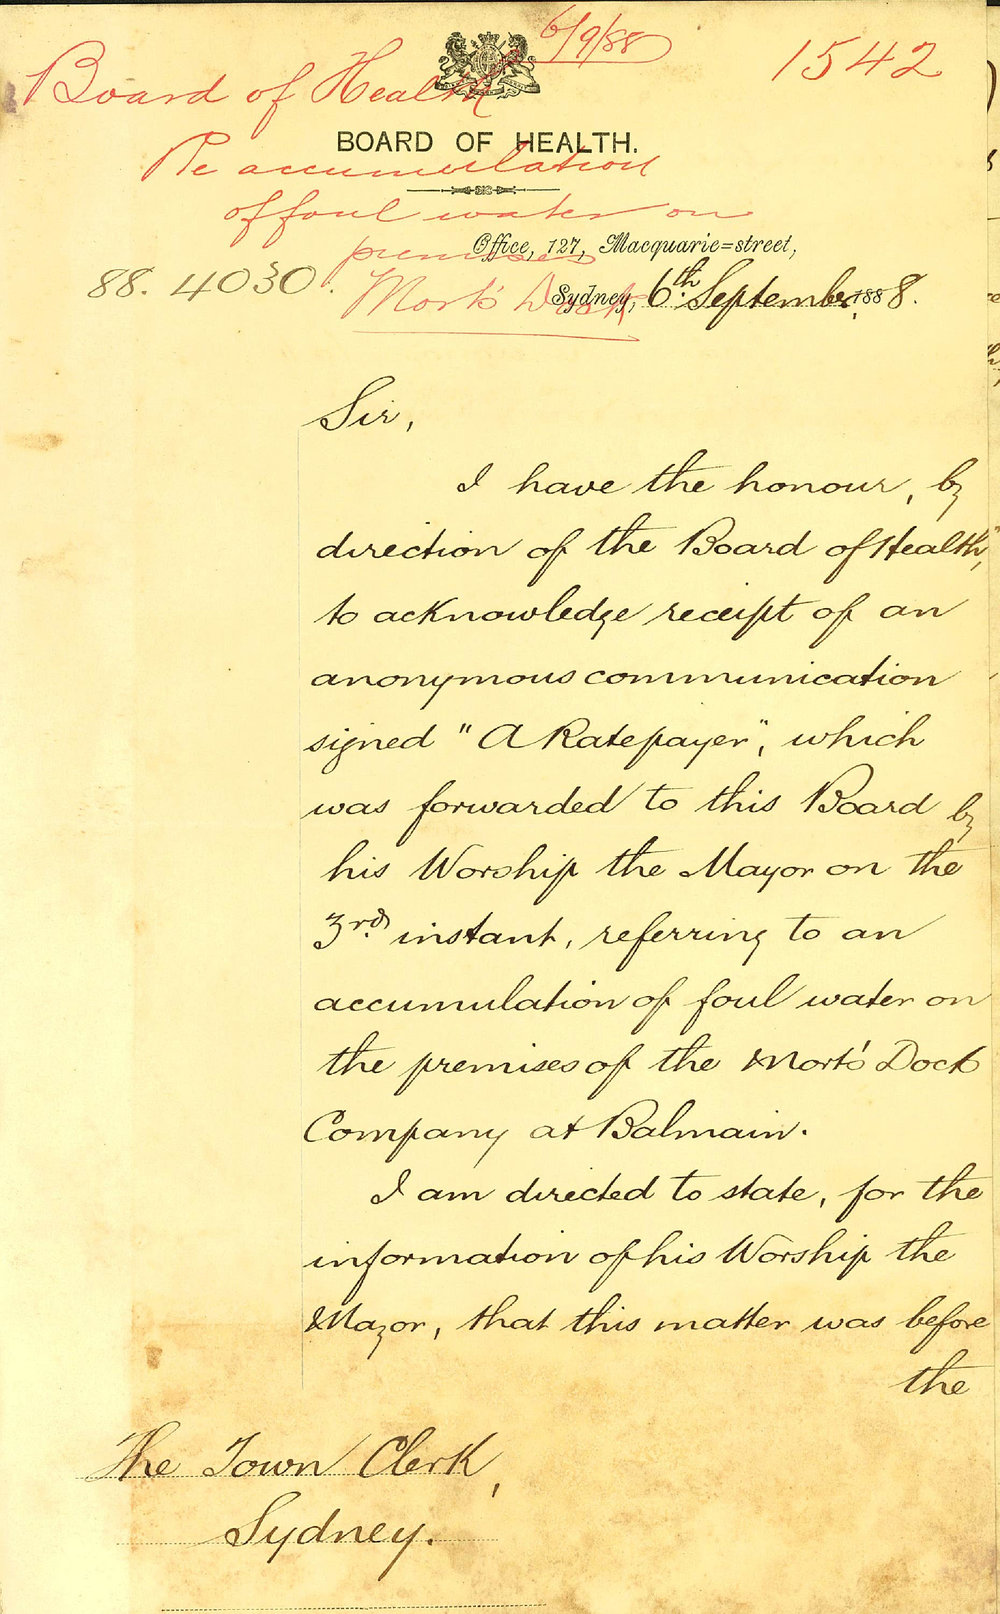 6/9/88
1542
Board of Health
BOARD OF HEALTH.
Re accumulation
of foul water on
premises
Mort's Dock
Office, 127, Macquarie=street,
88. 4030.
Sydney, 6th. September, 1888.
Sir,
I have the honour, by
direction of the Board of Health,
to acknowledge receipt of an
anonymous communication
signed "A Ratepayer", which
was forwarded to this Board by
his Worship the Mayor on the
3rd. instant, referring to an
accumulation of foul water on
the premises of the Mort's Dock
Company at Balmain.
I am directed to state, for the
information of his Worship the
Mayor, that this matter was before
the
The Town Clerk,
Sydney.